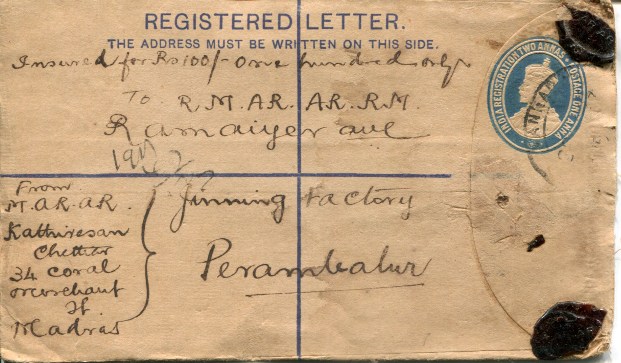 REGISTERED LETTER.
THE ADDRESS MUST BE WRITTEN ON THIS SIDE.
Insured for Rs 100/- One hundred only
To R.M.AR. AR.R.M.
Ramaiyer ave
INDIA REGISTRATION TWO ANNAS POSTAGE ONE ANNA
From
M.AR-AR.
Kathiresan
Chettiar
34 Coral
merchant
St
Madras
Jinning Factory
Perambalur